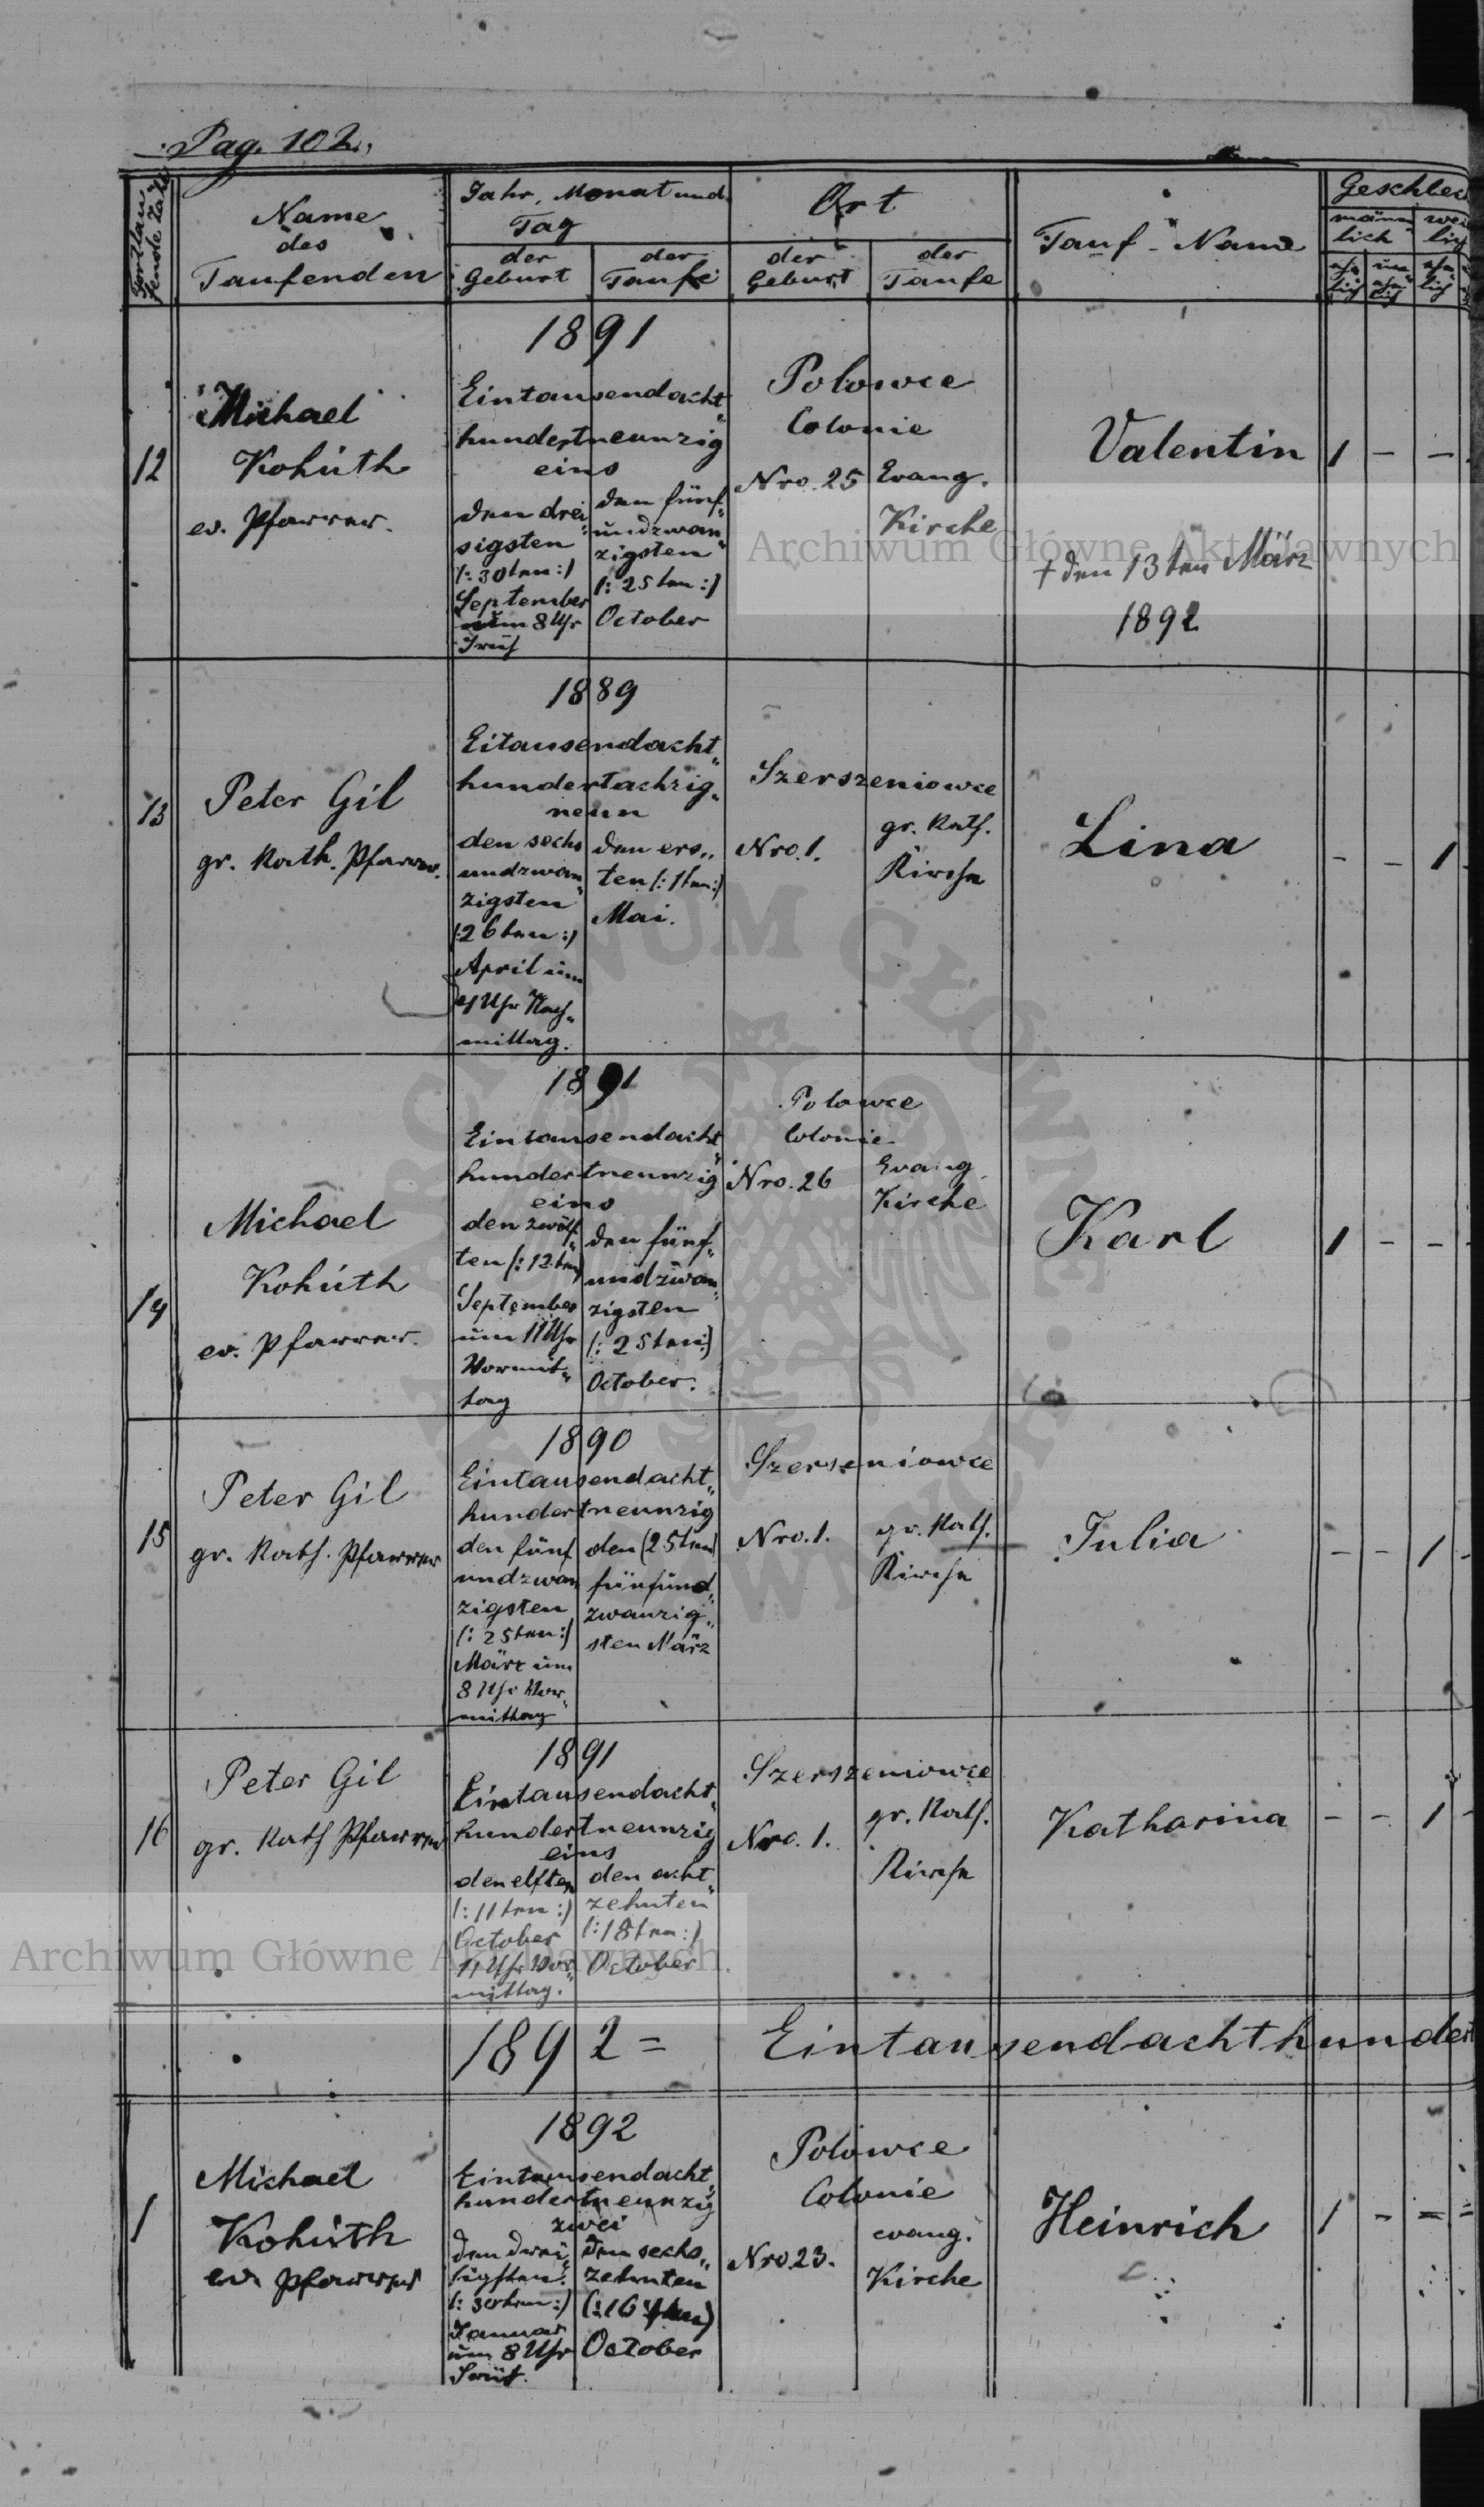 Pag. 102.,
Fortlau-
fende Zahl
Name
des
Taufenden
Jahr, Monat und
Tag
der
Geburt
der
Taufe
Ort
der
Geburt
der
Taufe
Tauf-Name
Geschlec
männ
lich
wei
lich
ehe
lich
une
ehe
lich
ehe
lich
12
Michael
Kohúth
ev. Pfarrer.
1891
Eintausendacht"
hundertneunzig
eins
den drei"
sigsten
(: 30ten :)
September
um 8 Uhr
Früh
den fünf"
undzwan"
zigsten
(: 25ten :)
October
Polowce
Colonie
Nro. 25
Evang.
Kirche
Valentin
† den 13ten März
1892
1 – –
13
Peter Gil
gr. Kath. Pfarrer.
1889
Eitausendacht"
hundertachzig"
neun
den sechs
undzwan"
zigsten
(: 26ten :)
April um
Uhr Nach"
mittag.
den ers"
ten (: 1ten :)
Mai.
Szerszeniowce
Nro. 1.
gr. Kath.
Kirche
Lina
– – 1
14
Michael
Kohúth
ev. Pfarrer.
1891
Eintausendacht"
hundertneunzig
eins
den zwölf"
ten (: 12ten)
September
um 11 Uhr
Vormit"
tag
den fünf"
undzwan"
zigsten
(: 25ten :)
October.
Polowce
Colonie
Nro. 26
Evang
Kirche
Karl
1 – –
15
Peter Gil
gr. Kath. Pfarrer
1890
Eintausendacht"
hundertneunzig
den fünf
undzwan
zigsten
(: 25ten :)
März um
8 Uhr Vor"
mittag
den (25ten)
fünfund"
zwanzig"
sten März
Szerszeniowce
Nro. 1.
gr. Kath.
Kirche
Julia
– – 1 –
16
Peter Gil
gr. Kath Pfarrer
1891
Eintausendacht"
hundertneunzig
eins
den elften
(: 11ten :)
October
11 Uhr Vor"
mittag.
den acht"
zehnten
(: 18ten :)
October
Szerszeniowce
Nro. 1.
gr. Kath.
Kirche
Katharina
– – 1 –
1892 = Eintausendachthundert
1
Michael
Kohúth
ev. Pfarrer
1892
Eintausendacht"
hundertneunzig
zwei
den drei"
sigsten
(: 30ten :)
Januar
um 8 Uhr
Früh.
den sechs"
zehnten
(: 16ten)
October
Polowce
Colonie
Nro. 23.
evang.
Kirche
Heinrich
1 – = =
Archiwum Główne Akt Dawnych
Archiwum Główne Akt Dawnych
ARCHIWUM GŁÓWNE